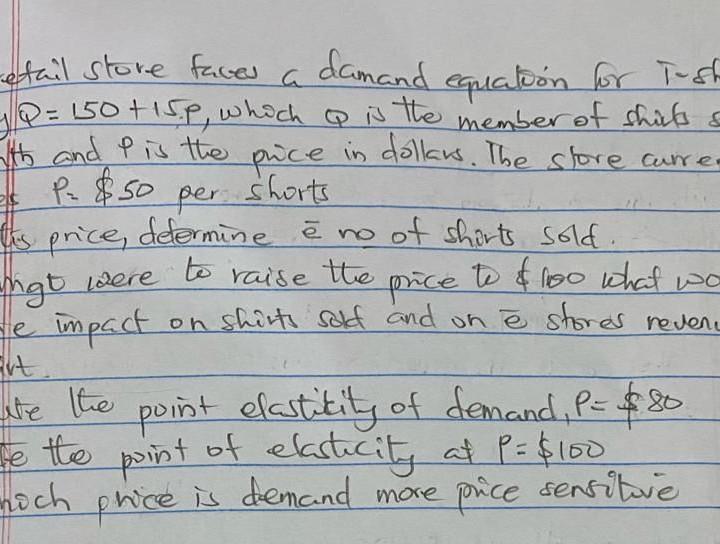 etail store faces a damand equation for T-sh
y Q = 150 + 15P, which Q is the member of shirts s
nth and P is the price in dollars. The store curre
es P = $50 per shorts
this price, determine ē no of shorts sold.
mgt were to raise the price to $100 what wo
e impact on shirts sold and on ē stores reven
irt.
ate the point elastikity of demand, P = $80
te the point of elasticity at P = $100
hoch price is demand more price sensitive